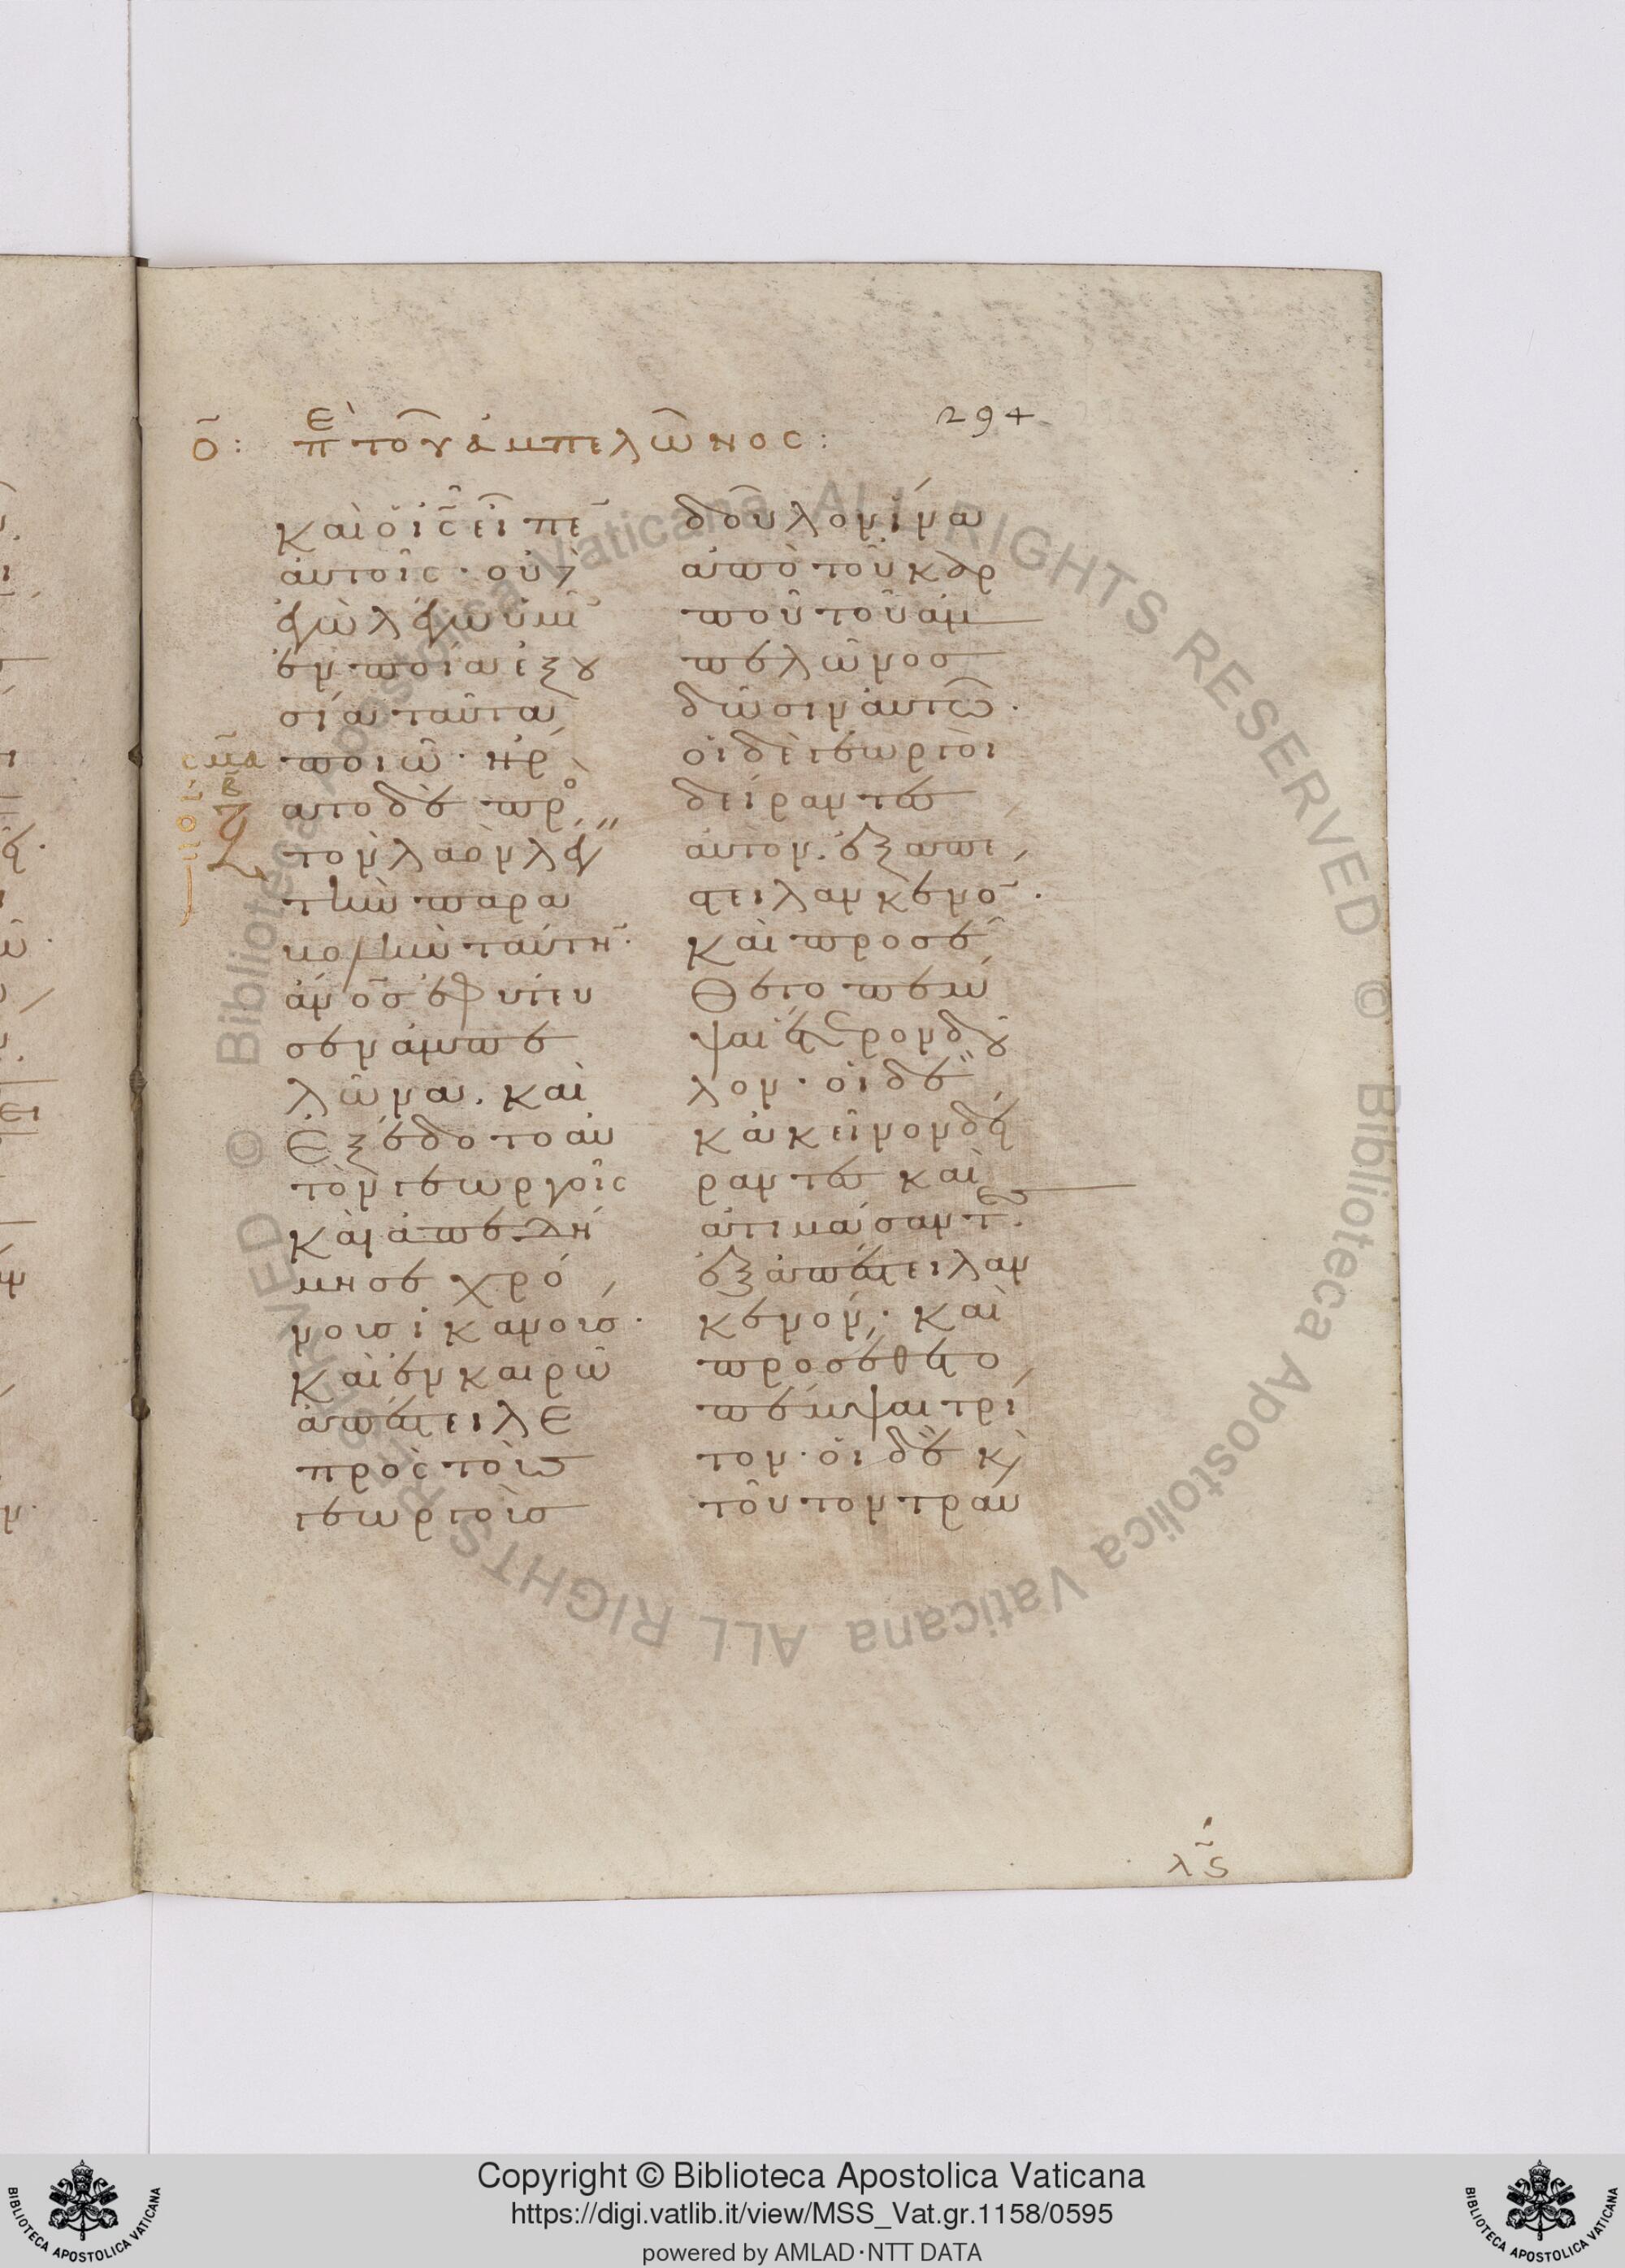 294
ο̃: π ὲ τοῦ ἀμπελῶνος:
καὶ ὁ ἰς̃ εἶπε̃
αυτοῖς· οὐδὲ
ἐγὼ λέγω ὑμῖ̃
ἐν ποία ἐξου
σία ταῦτα
ποιῶ· ἤρ
ξατο δὲ πρὸ
τὸν λαὸν λέγ
τὴν παρα
βολὴν ταύτη̃·
ἀνο̃σ ἐφύτευ
σεν ἀμπε
λῶνα. καὶ
Ἐξέδοτο αυ
τὸν γεωργοῖς
καὶ ἀπεδή
μησε χρό
νουσ ἱκανουσ·
καὶ ἐν καιρῶ
ἀπέστειλε
πρὸς τοὺσ
γεωργοὺσ
δοῦλον ἵνα
ἀπὸ τοῦ καρ
ποῦ τοῦ ἀμ
πελῶνοσ
δῶσιν αὐτῶ.
οἱ δὲ γεωργοὶ
δείραντεσ
αὐτον. ἐξαπέ
στειλαν κενο̃·
καὶ προσέ
θετο πέμ
ψαι ἕτερον δοῦ
λον· οἱ δὲ
κακεῖνον δεί
ραντεσ καὶ
ἀτιμάσαντεσ.
ἐξαπέστειλαν
κενόν· καὶ
προσέθετο
πέμψαι τρί
τον· οἱ δὲ κὶ
τοῦτον τραυ
λς̃
Copyright © Biblioteca Apostolica Vaticana
https://digi.vatlib.it/view/MSS_Vat.gr.1158/0595
powered by AMLAD·NTT DATA
BIBLIOTECA APOSTOLICA VATICANA
BIBLIOTECA APOSTOLICA VATICANA
© Biblioteca Apostolica Vaticana ALL RIGHTS RESERVED © Biblioteca Apostolica Vaticana ALL RIGHTS RESERVED